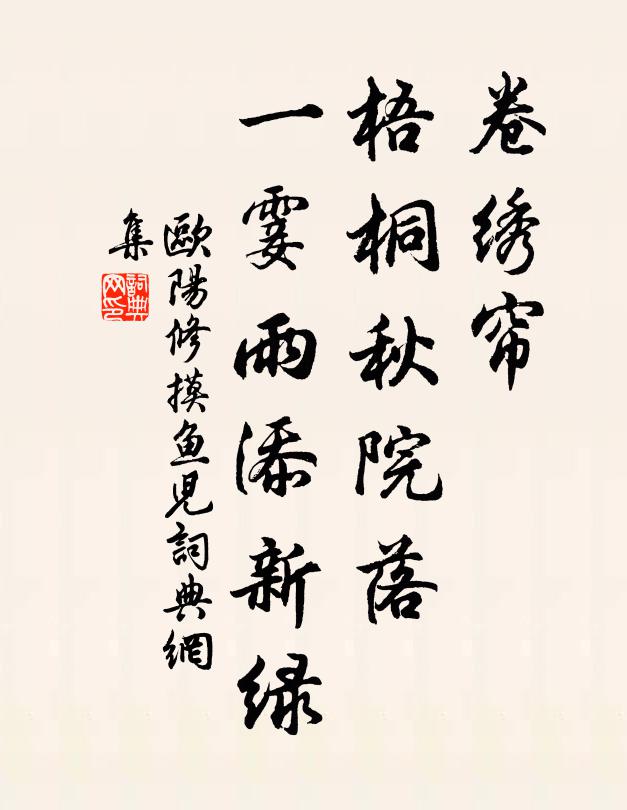 卷绣帘
梧桐秋院落
一霎雨添新绿
歐陽修摸鱼児詞典網
集
詞典
网印